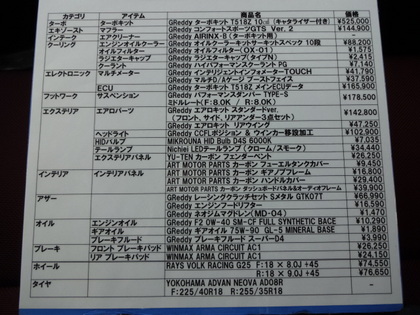 カテゴリ アイテム 商品名 価格
ターボ ターボキット GReddy ターボキット T518Z 10㎠ [キャタライザー付き] ¥525,000
エキゾースト マフラー GReddy コンフォートスポーツGTS Ver. 2 ¥144,900
インテーク エアクリーナー GReddy AIRINX-B (ターボキット用) -
クーリング エンジンオイルクーラー GReddy オイルクーラーキットサーキットスペック 10段 ¥88,200
オイルフィルター GReddy オイルフィルター (OX-01) ¥1,571
ラジエターキャップ GReddy ラジエターキャップ(タイプN) ¥2,415
クーラント GReddy ハイパフォーマンスクーラント PG ¥7,140
エレクトロニック マルチメーター GReddy インテリジェントインフォメーターTOUCH ¥41,790
GReddy マルチD/Aゲージ ブーストメーター ¥37,590
ECU GReddy ターボキット T518Z メインECUデータ ¥165,900
フットワーク サスペンション GReddy パフォーマンスダンパー TYPE-S ¥178,500
ミドルレート(F:8.0K / R:8.0K)
エクステリア エアロパーツ GReddy エアロキット スタンダードver. ¥142,800
(フロント、サイド、リアアンダー3点セット)
GReddy エアロキット リアウイング ¥47,250
ヘッドライト GReddy CCFLポジション & ウインカー移設加工 ¥102,900
HIDバルブ MIKROUNA HID Bulb D4S 6000K ¥7,035
テールランプ Nichiei LEDテールランプ (クローム/スモーク) ¥34,440
エクステリアパネル YU-TEN カーボン フェンダーベント ¥26,250
ART MOTOR PARTS カーボン フューエルタンクカバー ¥9,450
インテリア インテリアパネル ART MOTOR PARTS カーボン ギアノブフレーム ¥16,800
ART MOTOR PARTS カーボン ハンドルカバー ¥29,400
ART MOTOR PARTS カーボン ダッシュボードパネル&オーディオフレーム ¥39,900
アザー GReddy レーシングクラッチセット Sメタル GTK07T ¥66,990
GReddy エンジンフードリフター ¥16,590
GReddy ネオジムマグドレン(MD-04) ¥1,470
オイル エンジンオイル GReddy F2 0W-40 SM-CF FULL SYNTHETIC BACE ¥10,290
ギアオイル GReddy ギアオイル 75W-90 GL-5 MINERAL BASE ¥1,890
ブレーキフルード GReddy ブレーキフルード スーパーD4 ¥3,990
ブレーキ フロント ブレーキパッド WINMAX ARMA CIRCUIT AC1 ¥26,250
リア ブレーキパッド WINMAX ARMA CIRCUIT AC1 ¥24,150
ホイール RAYS VOLK RACING G25 F:18 × 8.0J +45 ¥74,550
R:18 × 9.0J +45 ¥76,650
タイヤ YOKOHAMA ADVAN NEOVA AD08R -
F:225/40R18 R:255/35R18